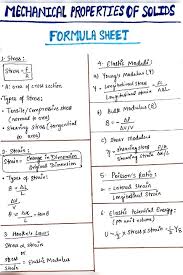 MECHANICAL PROPERTIES OF SOLIDS
FORMULA SHEET
1- Stress:
Stress = F/A
A: area of cross section
Types of Stress:
- Tensile/Compressive stress
(normal to area)
- Shearing Stress (tangential
to area)
2- Strain:
Strain = Change in Dimension / Original Dimension
Types of Strain:
3 Hooke's Law:
Stress ∝ strain
Elastic Modulus
4- Elastic Moduli:
a) Young's Modulus (Y)
Y = Longitudinal stress / Longitudinal strain
b) Bulk Modulus (B)
c) Shear Modulus
= shearing stress / shearing strain
5- Poisson's Ratio:
= Lateral Strain / Longitudinal Strain
6- Elastic Potential Energy:
(per unit volume)
U = ½ × stress × strain